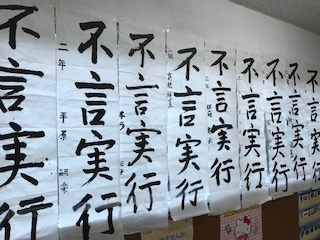 不言実行
不言実行
二年 平原
不言実行
不言実行
不言実行
不言実行
不言実行
不言実行
不言実行